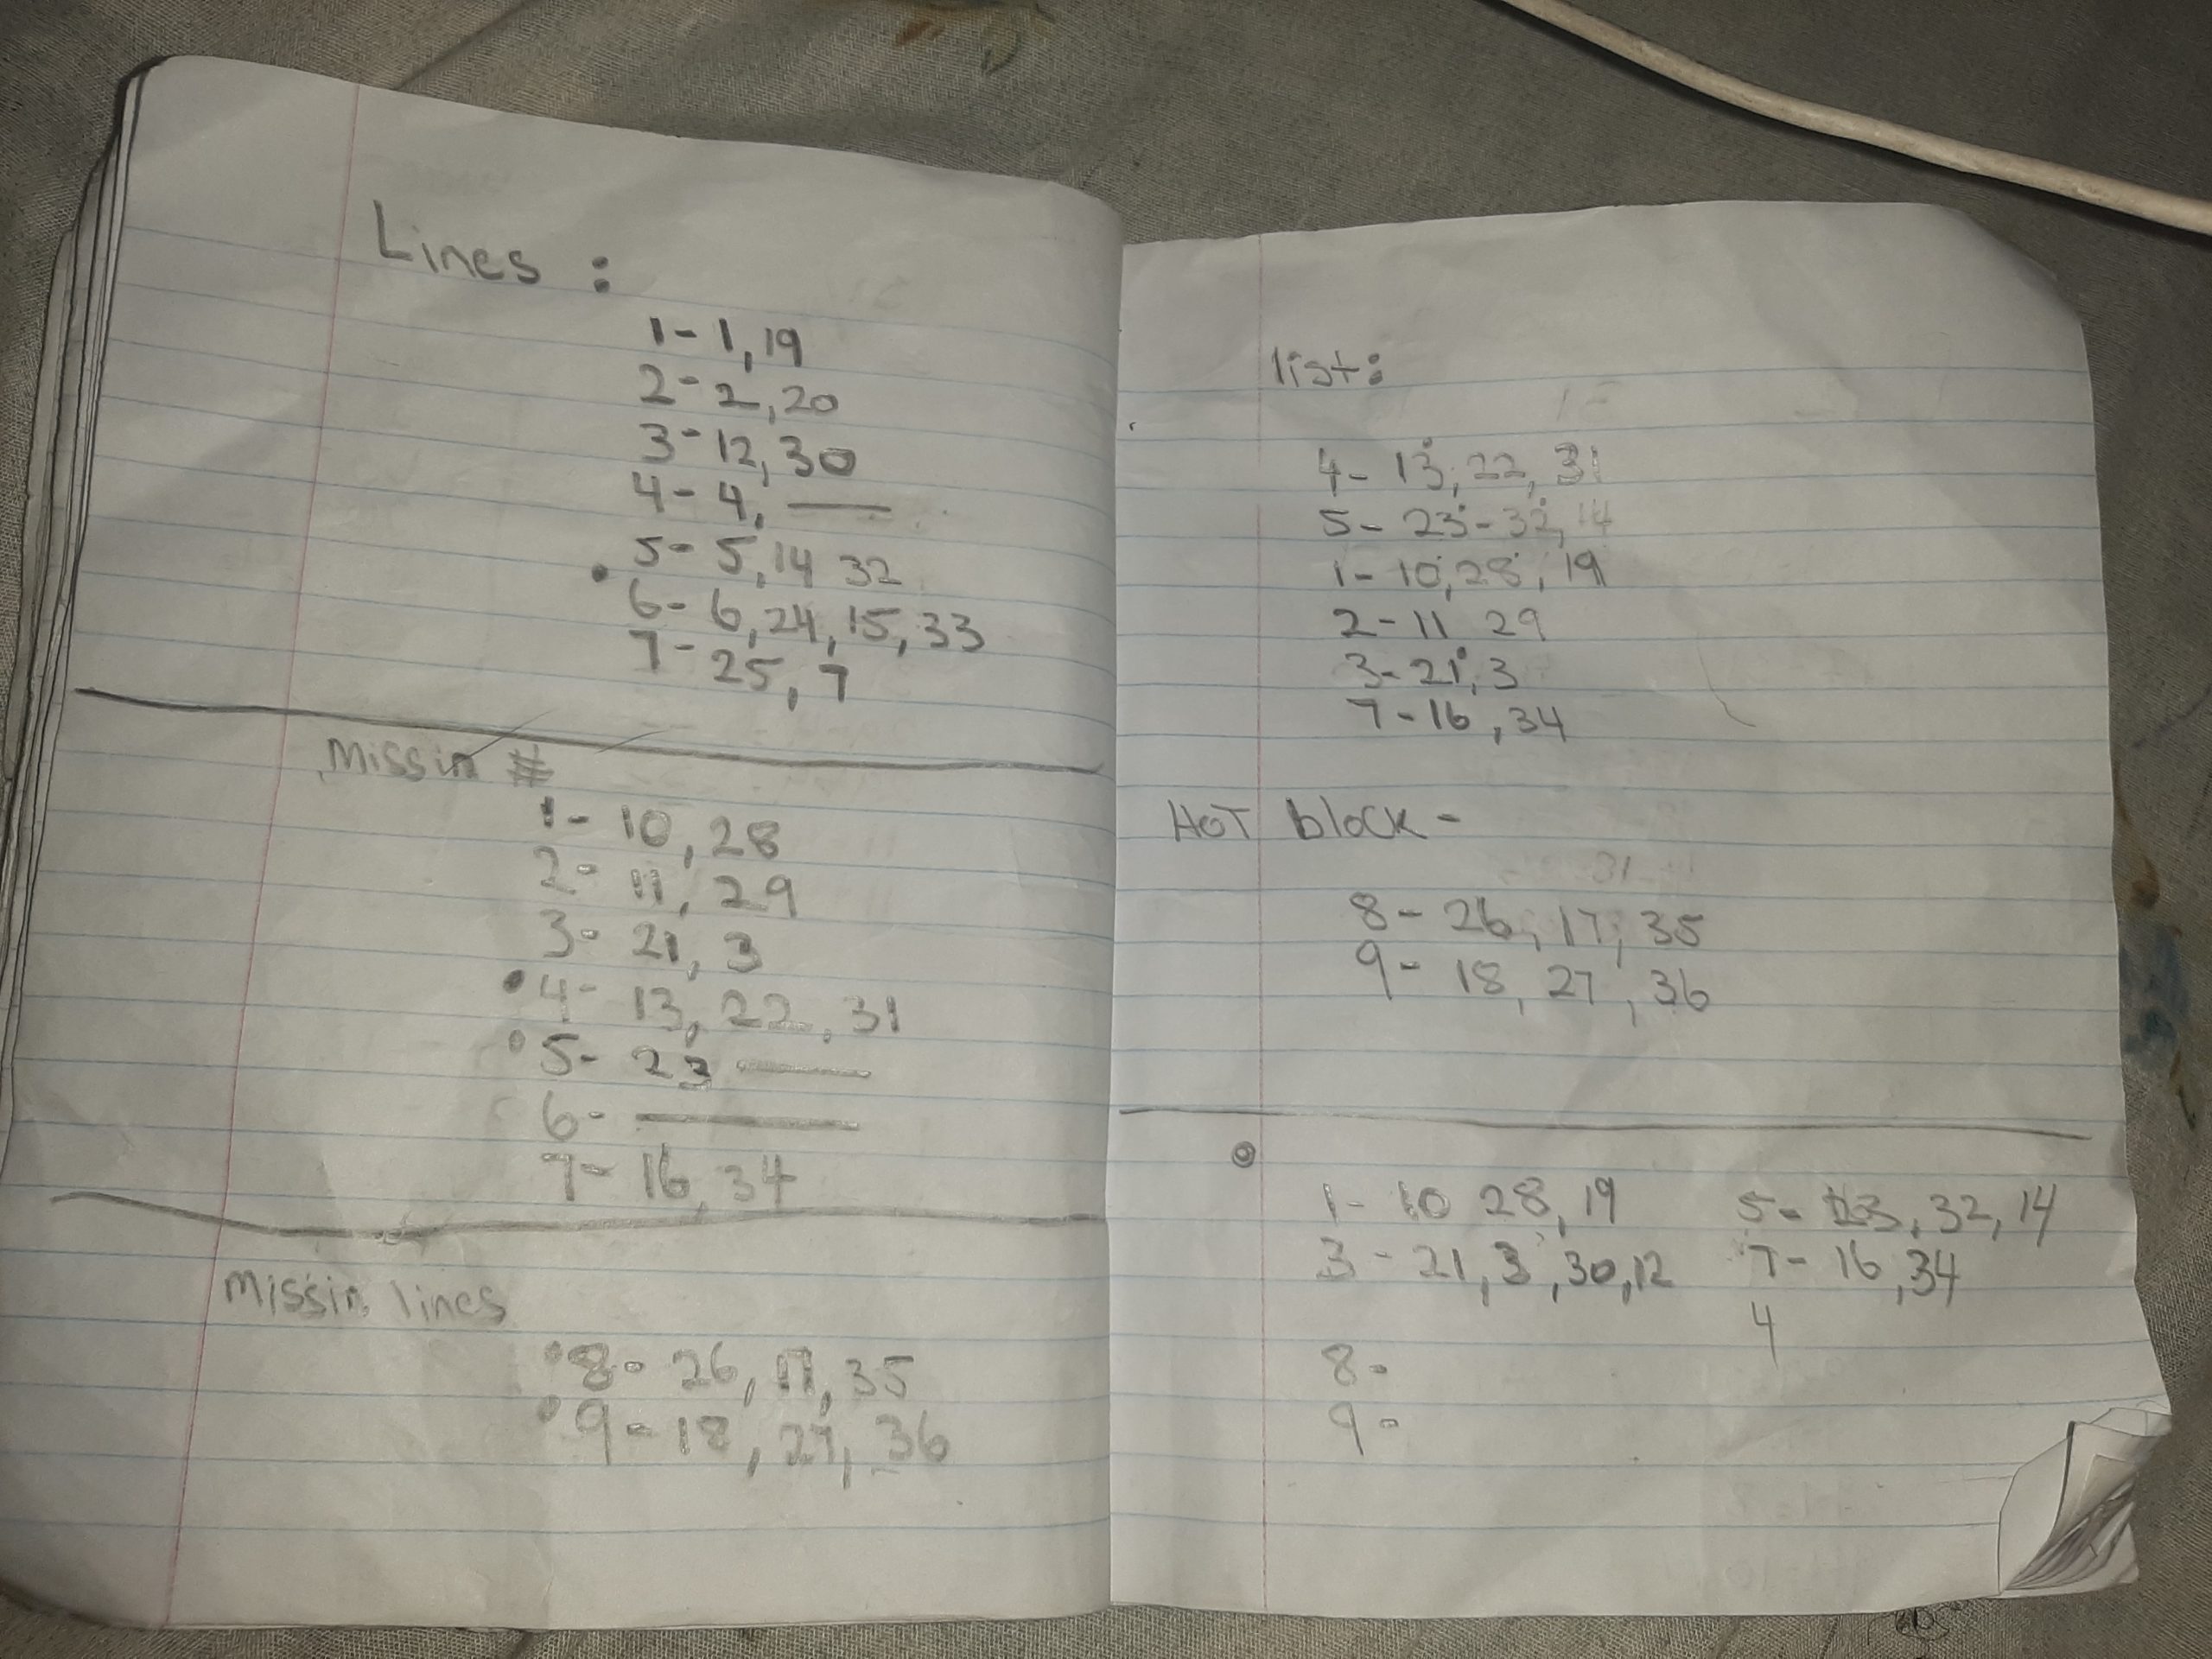 Lines :
1- 1, 19
2- 2, 20
3- 12, 30
4- 4, ___
5- 5, 14 32
6- 6, 24, 15, 33
7- 25, 7
Missin #
1- 10, 28
2- 11, 29
3- 21, 3
4- 13, 22, 31
5- 23 ___
6- ___
7- 16, 34
Missin lines
8- 26, 17, 35
9- 18, 27, 36
list:
4- 13, 22, 31
5- 23-32, 14
1- 10, 28, 19
2- 11 29
3- 21, 3
7- 16, 34
HOT block -
8- 26, 17, 35
9- 18, 27, 36
1- 10 28, 19 5- 23, 32, 14
3- 21, 3, 30, 12 7- 16, 34
4
8-
9-